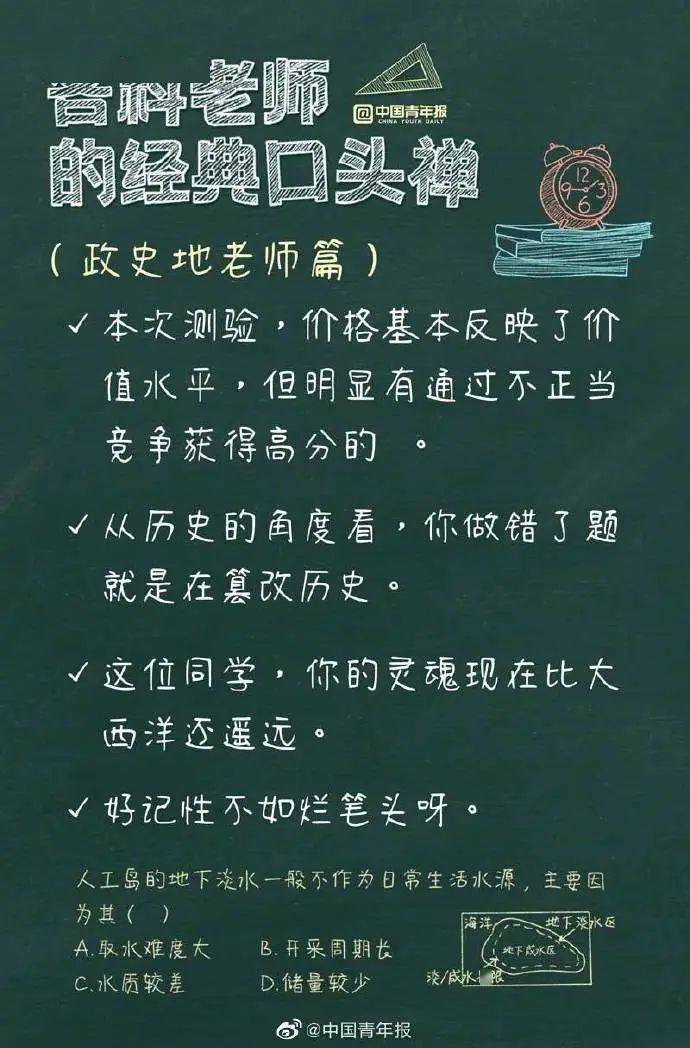 各科老师
@中国青年报
CHINA YOUTH DAILY
的经典口头禅
12
9 3
6
(政史地老师篇)
✓本次测验，价格基本反映了价
值水平，但明显有通过不正当
竞争获得高分的 。
✓从历史的角度看，你做错了题
就是在篡改历史。
✓这位同学，你的灵魂现在比大
西洋还遥远。
✓好记性不如烂笔头呀。
人工岛的地下淡水一般不作为日常生活水源，主要因
为其( )
A.取水难度大 B.开采周期长
C.水质较差 D.储量较少
海洋 地下淡水区
地下咸水区
淡/咸水 限
@中国青年报